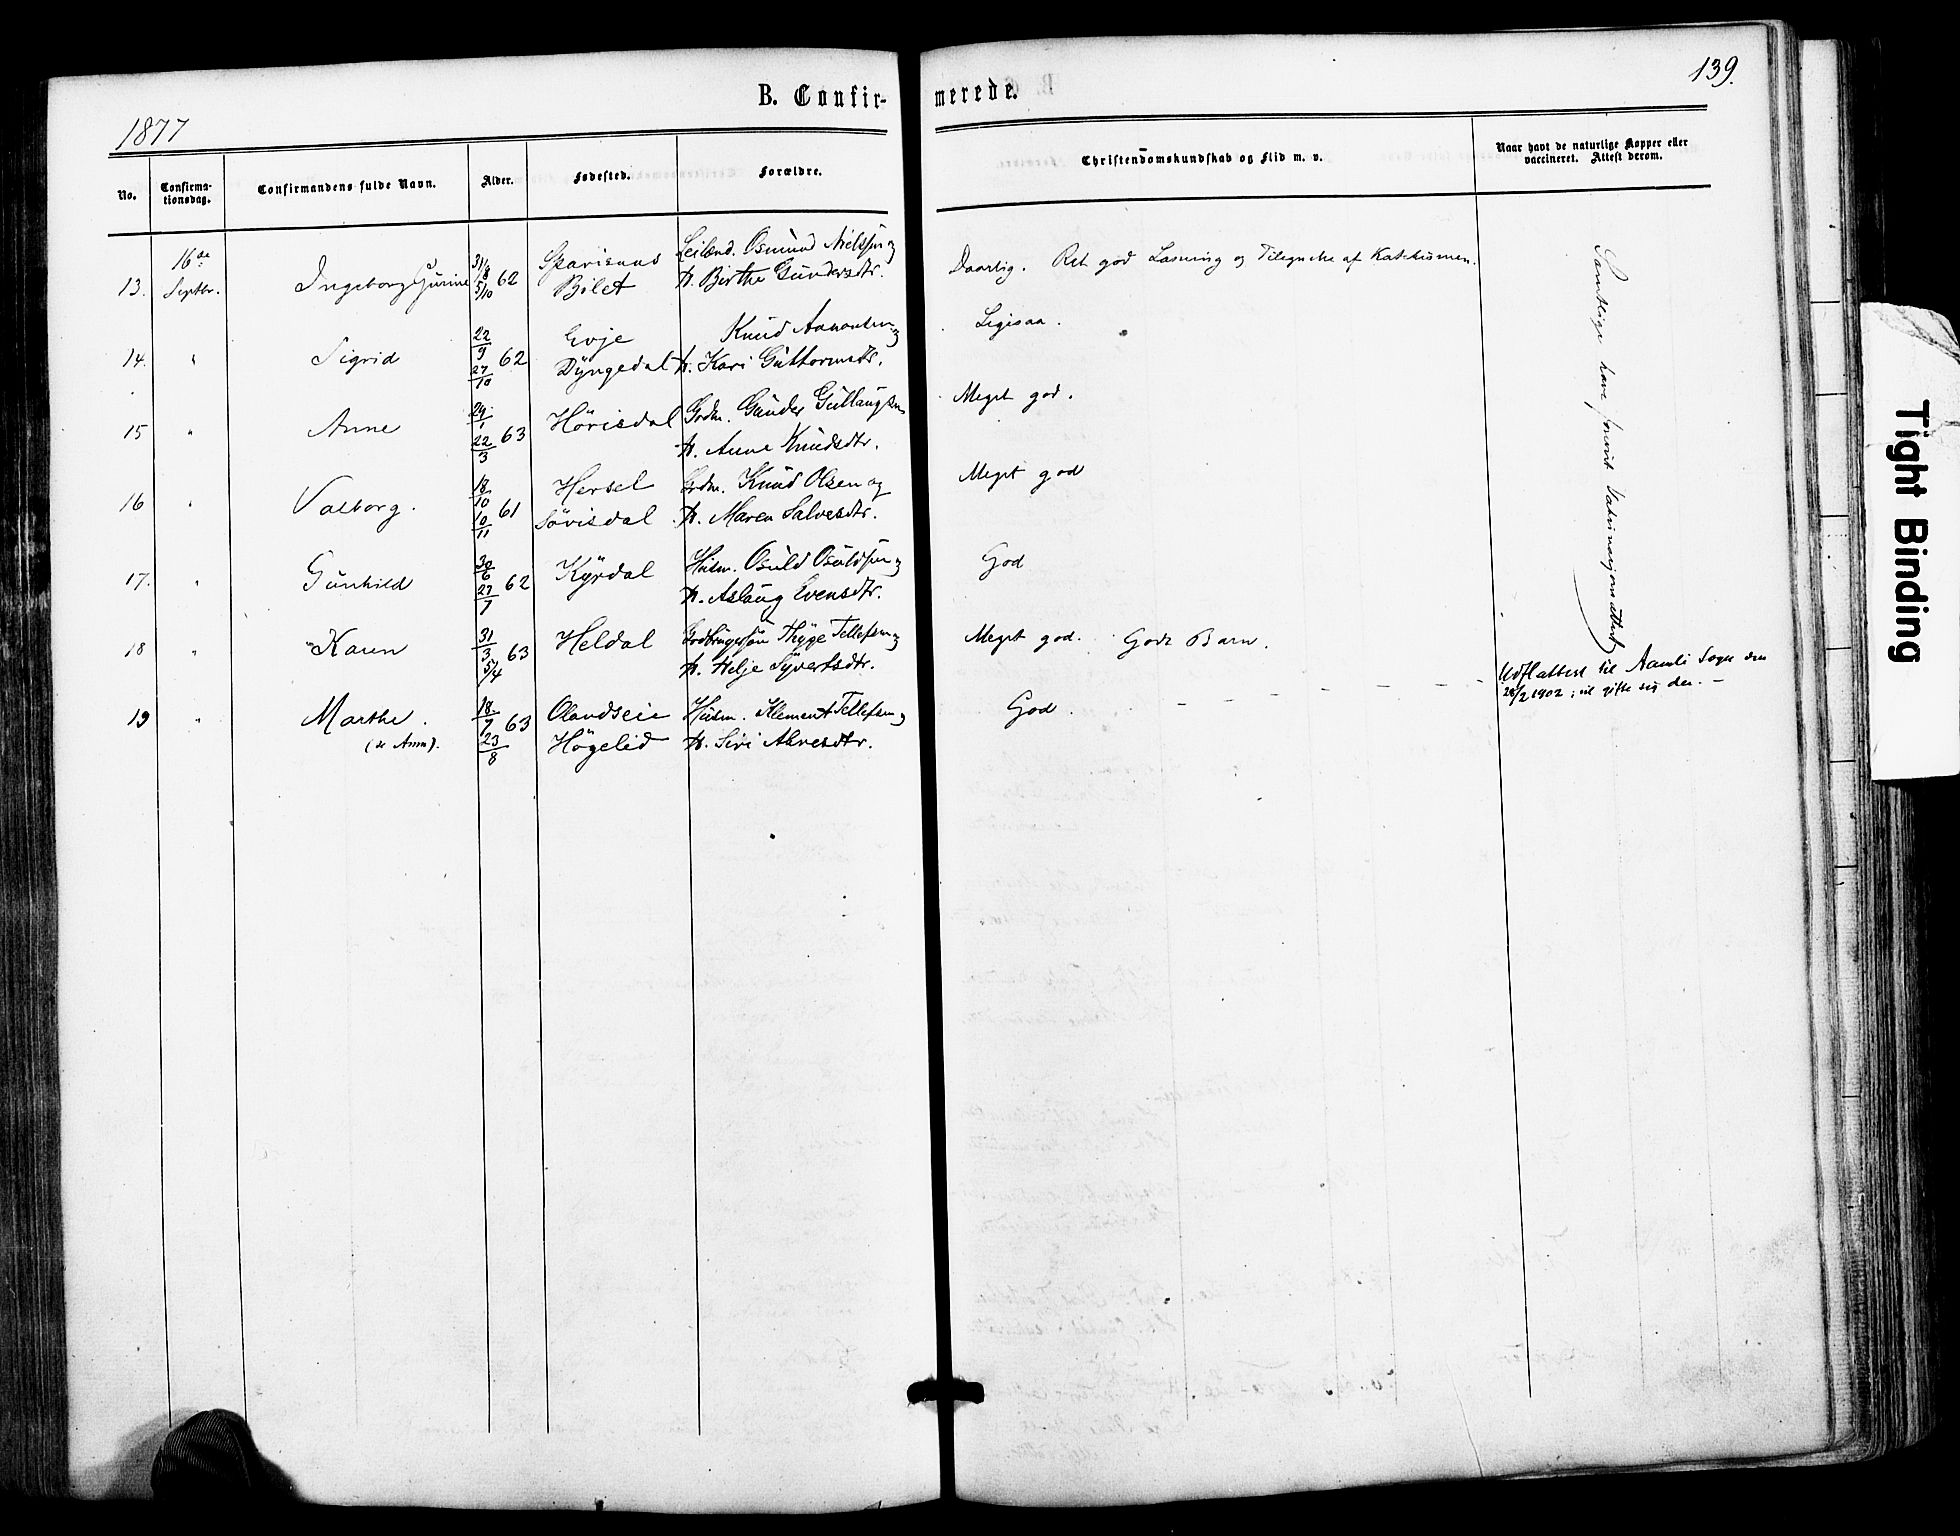 139.
B. Confir-
merede.
1877
No.
Confirma-
tionsdag.
Confirmandens fulde Navn.
Alder.
Fødested.
Forældre.
Christendomskundskab og Flid m. v.
Naar havt de naturlige Kopper eller
vaccineret. Attest derom.
13. 16de Septbr. Ingeborg Gurine 31/8 5/10 62
Bilet
Leilænd. Osmund Nielssen og
H. Birthe Gundersdtr.
Daarlig. Ret god Læsning og Tilegnelse af Katekismen.
14. " Sigrid 22/9 27/10 62
Evje
Dyngedal
Knud Aanonsen og
H. Kari Guttormsdtr.
Ligesaa.
15 " Anne 29/1 22/3 63
Hörisdal
Grdm. Gunder Gullaugsen
H. Anne Knudsdtr.
Meget god.
16 " Valborg. 18/10 10/11 61
Hersel
Sövisdal
Grdm. Knud Olsen og
H. Maren Salvesdtr.
Meget god
17. " Gunhild 30/6 27/7 62
Kyrdal
Husm. Osuld Osuldsen og
H. Aslaug Evensdtr.
God
18 " Karen 31/3 5/4 63
Heldal
Thyge Tellefsen og
H. Helje Syvertsdtr.
Meget god. Godt Barn.
19 " Marthe.
18/7 23/8 63
Olandseie
Högelid
Husm. Klement Tellefsen og
H. Siri Alvesdtr.
God.
Samtlige have forevist Vakcinasjonsattest
Udfl.attest til Aamli Sogn den
28/2 1902; vil gifte sig der. –
Tight Binding